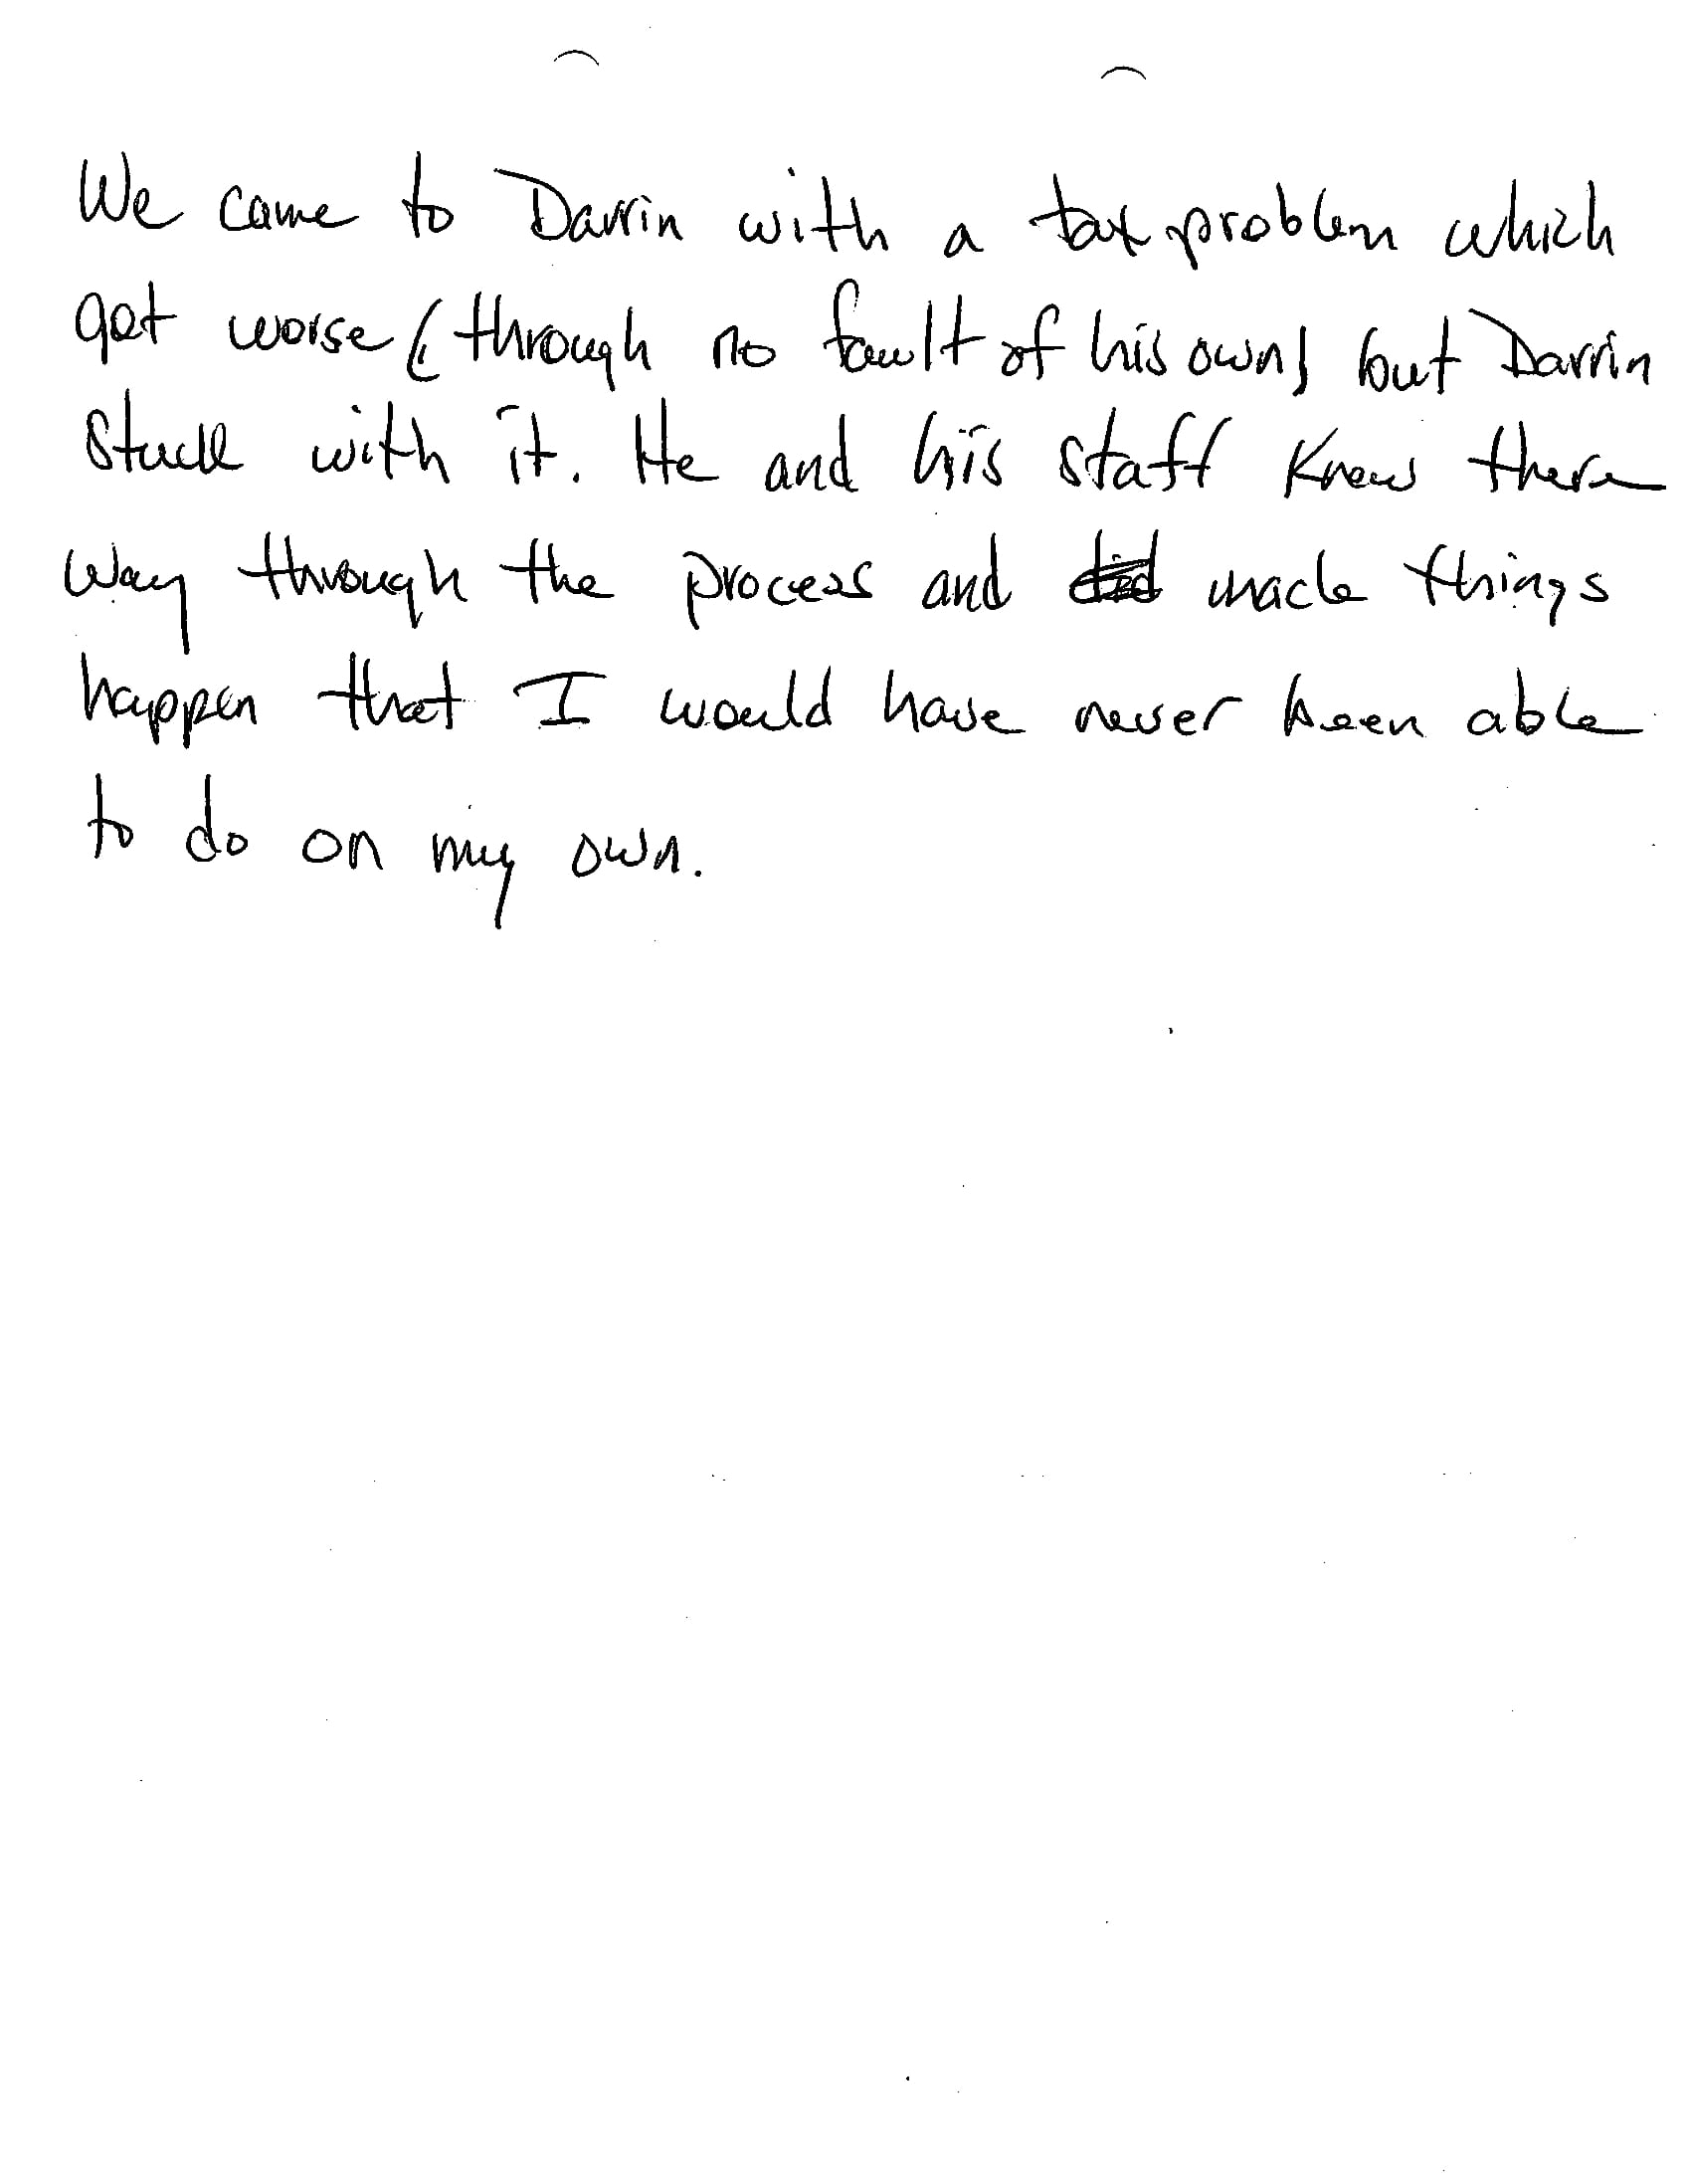 We came to Darrin with a tax problem which
got worse (through no fault of his own) but Darrin
stuck with it. He and his staff knew there
way through the process and did made things
happen that I would have never been able
to do on my own.